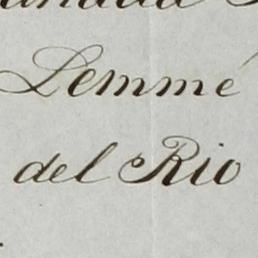 Lemmé
del Rio